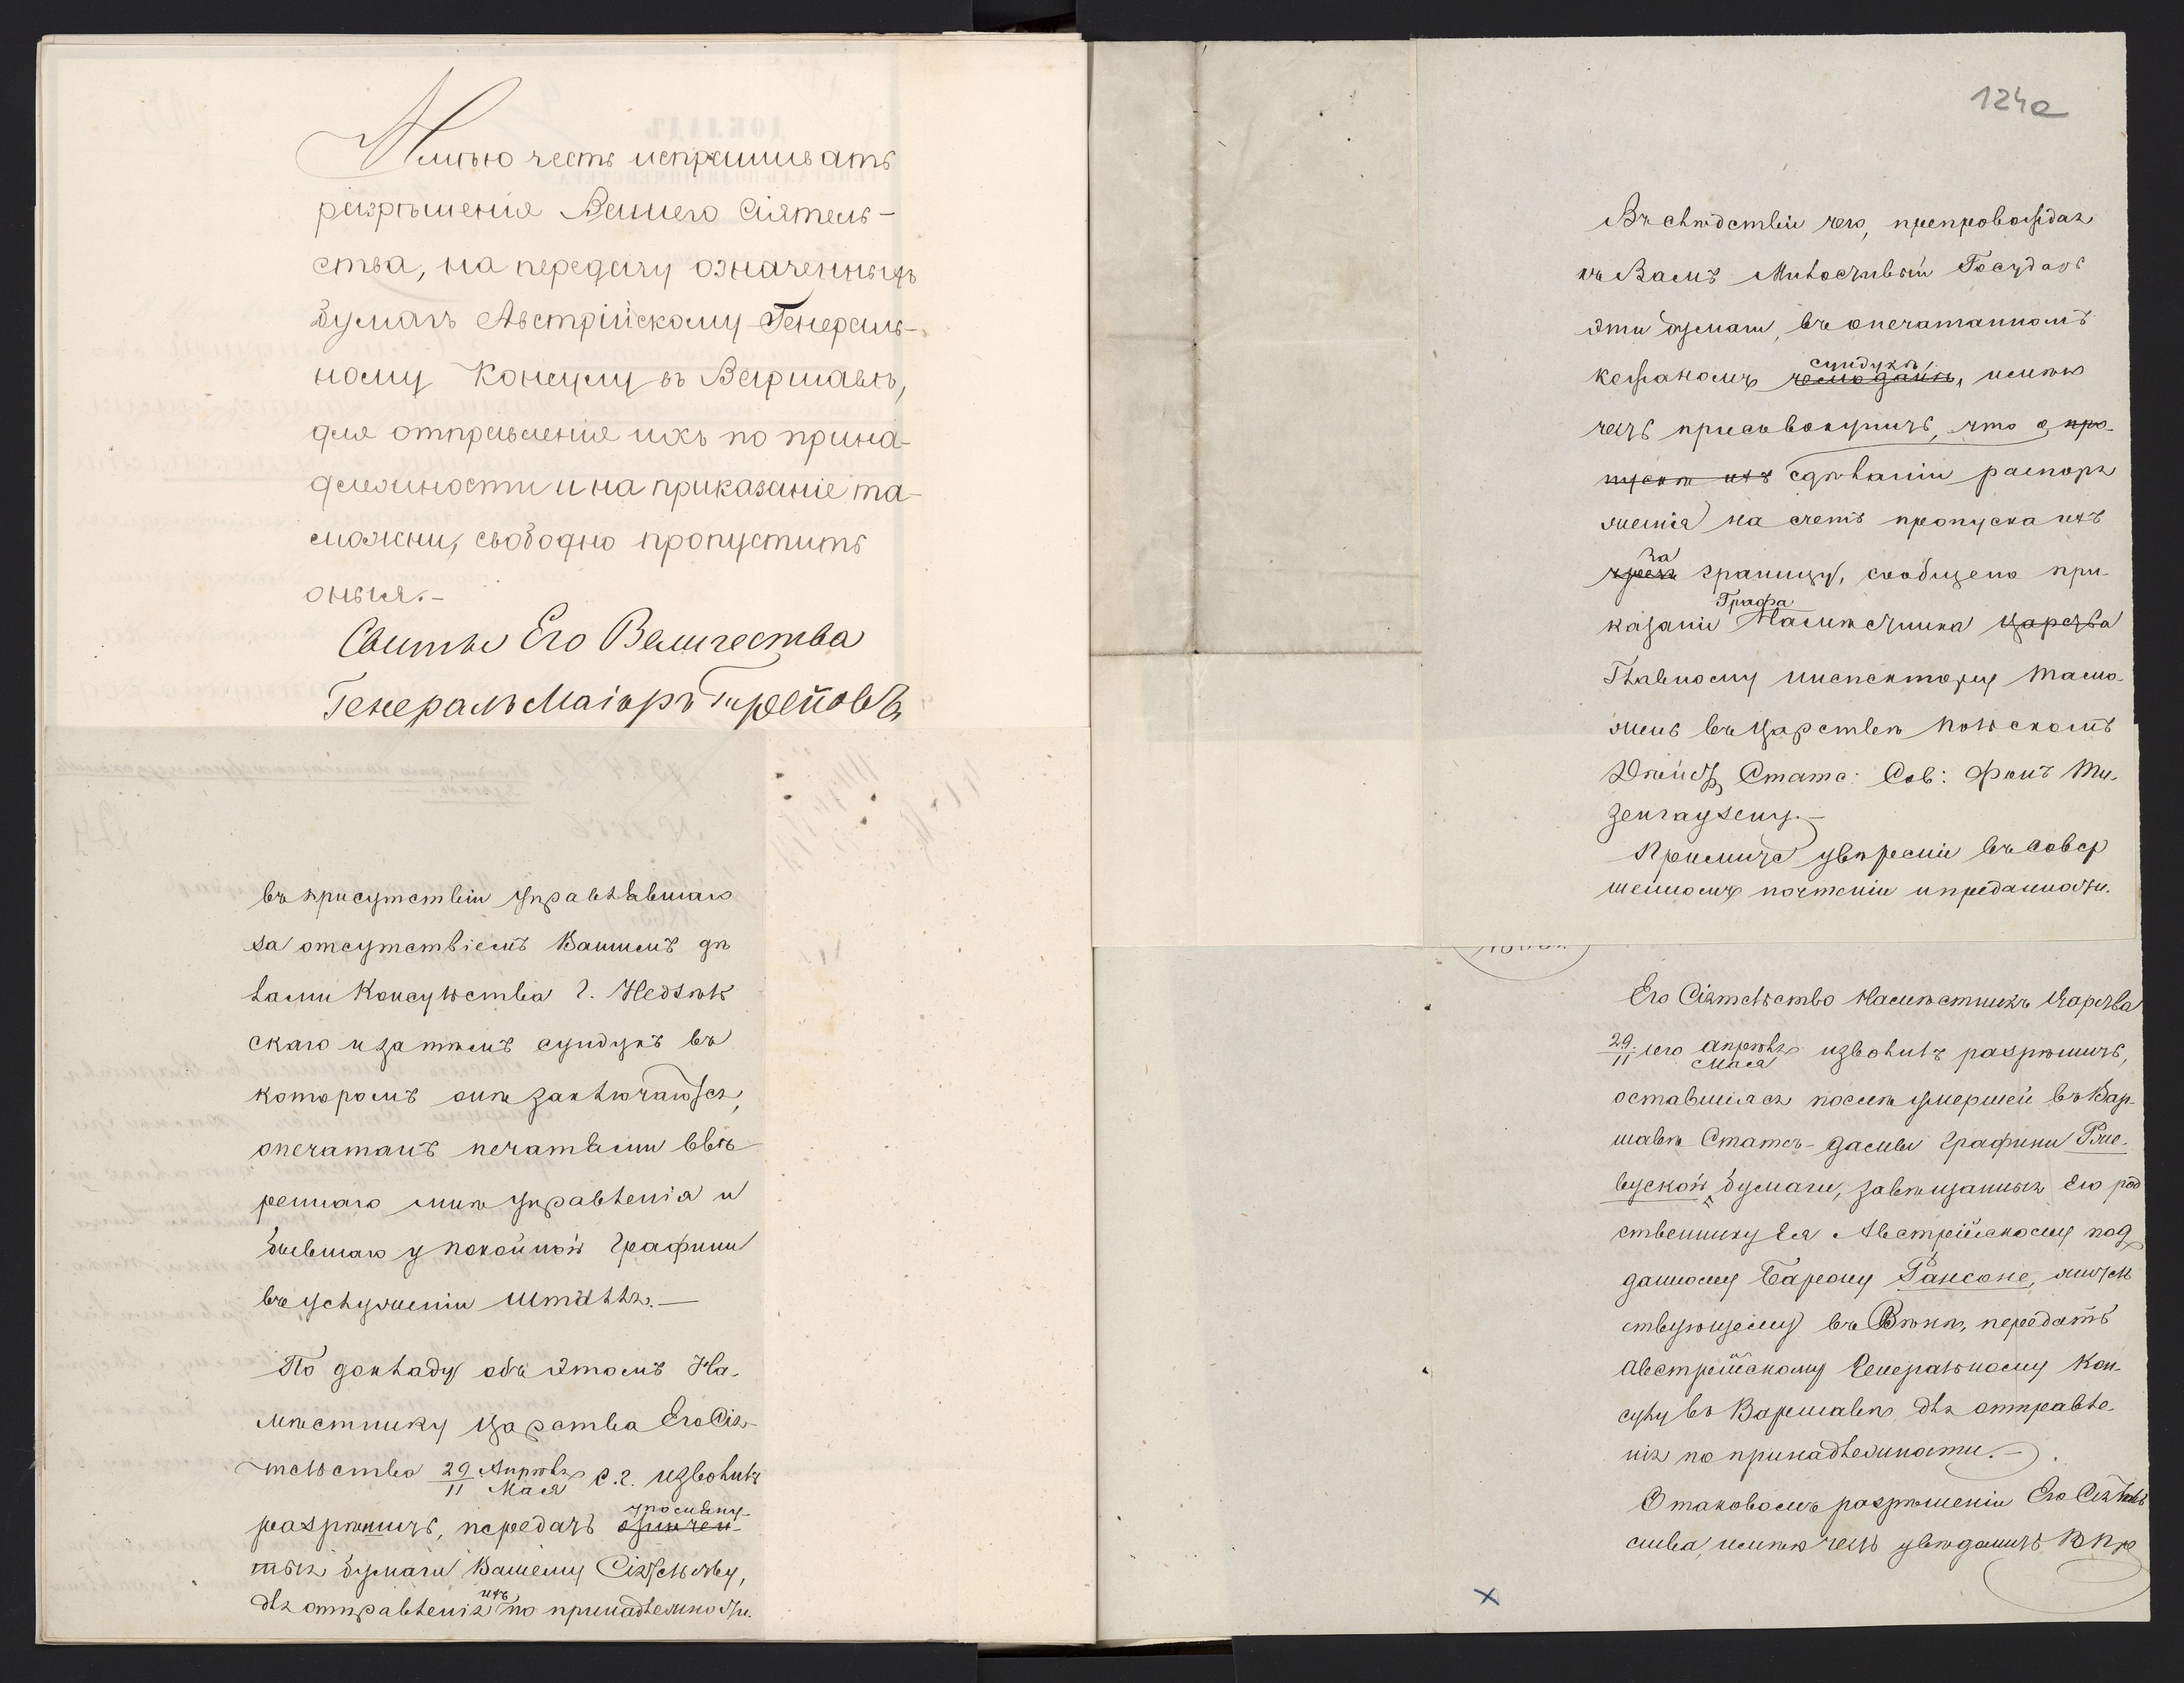 Имѣю честь испрашивать
разрѣшенія Вашего Сіятель-
ства, на передачу означенныхъ
бумагъ Австрійскому Генераль-
ному Консулу въ Варшавѣ,
для отправленія ихъ по прина-
длежности и на приказаніе та-
можни, свободно пропустить
оныя.-
Свиты Его Величества
Генералъ Маіоръ Треповъ
въ присутствіи Управлявшаго
за отсутствіемъ Вашимъ дѣ
лами Консульства Г.
скаго и затѣмъ сундукъ въ
которомъ они заключаются,
опечатанъ печатьми ввѣ
реннаго мнѣ Управленія и
бывшаго у покойной Графини
въ услуженіи
По докладу объ этомъ На-
мѣстнику Царства Его Сія-
тельство 29/11 Апрѣля/Мая с.г. изволилъ
разрѣшить, передать упомяну-
тыя бумаги Вашему Сіятельству,
для отправленія ихъ по принадлежности.
124a
Въ слѣдствіи чего, препровождая
къ Вамъ Милостивый Государь
эти бумаги, въ опечатанномъ
кожаномъ сундукѣ, чемоданѣ, имѣю
честь присовокупить, что о про-
пускѣ ихъ сдѣланіи распоря
женія на счетъ пропуска ихъ
за чрезъ границу, сообщено при-
казаніе Графа Намѣстника Царства
Главному Инспектору Тамо-
жень въ Царствѣ Польскомъ
Дѣйст. Статс: Сов: Фонъ Ти-
зенгаузену.-
Примите увѣреніе въ совер
шенномъ почтеніи и преданности.
Его Сіятельство Намѣстникъ Царства
29/11 сего Апрѣля/Мая изволилъ разрѣшить,
оставшіяся послѣ умершей въ Вар-
шавѣ Статсъ-Дамы Графини Рже-
вуской бумаги, завѣщанныя Ею род
ственнику Ея Австрійскому под
данному Барону Рансоне, житель
ствующему въ Вѣнѣ, передать
Австрійскому Генеральному Кон-
сулу въ Варшавѣ для отправле-
нія по принадлежности.-
О таковомъ разрѣшеніи Его Сіятель
ства, имѣю честь увѣдомить